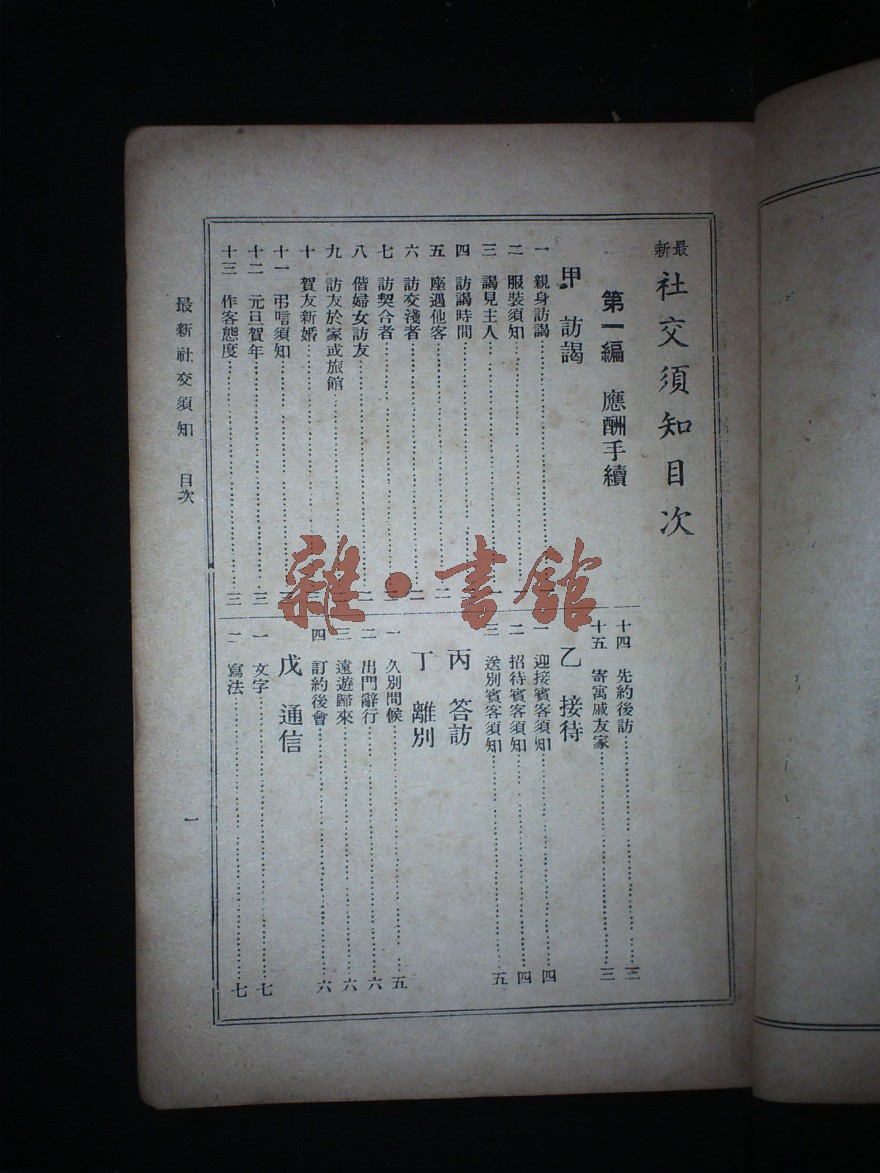 最新社交須知目次
第一編　應酬手續
甲　訪謁
一　親身訪謁
二　服裝須知
三　謁見主人
四　訪謁時間
五　座遇他客……二
六　訪交淺者……二
七　訪契合者
八　偕婦女訪友……二
九　訪友於家或旅館
十　賀友新婚
十一　弔唁須知
十二　元旦賀年……三
十三　作客態度……三
十四　先約後訪……三
十五　寄寓戚友家……三
乙　接待
一　迎接賓客須知……四
二　招待賓客須知……四
三　送別賓客須知……五
丙　答訪
丁　離別
一　久別問候……五
二　出門辭行……六
三　遠遊歸來……六
四　訂約後會……六
戊　通信
一　文字……七
二　寫法……七
最新社交須知　目次
一
雜·書館